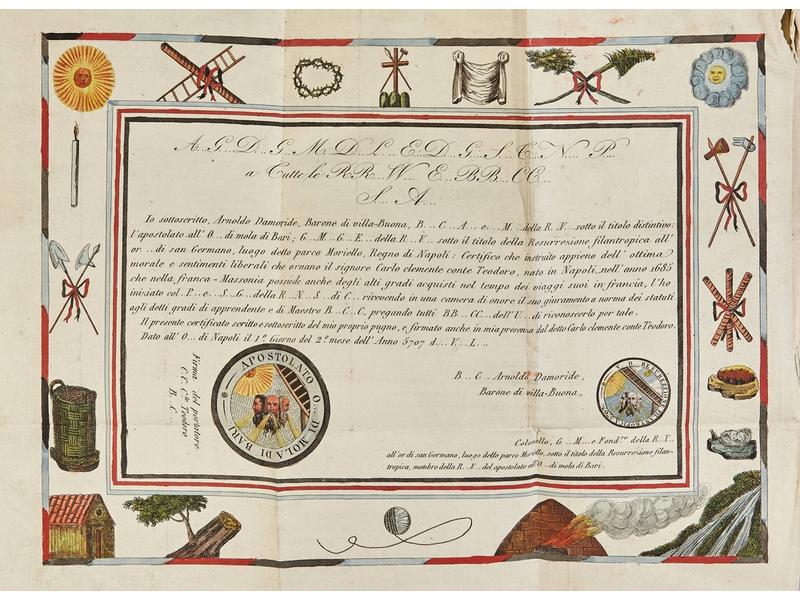 A...G...D...G...M...D...L...E...D...G...S...C...N...P...
a Tutte le R.R...W...E...BB...CC...
S...A...
Io sottoscritto, Arnoldo Damoride, Barone di villa-Buona, B...C...A... e...M...della R...V...sotto il titolo distintivo:
l'apostolato all' O...di mola di Bari; G...M...G...E...della R...V... sotto il titolo della Resurresione filantropica all'
or...di san Germano, luogo detto parco Moriello, Regno di Napoli: Certifico che instruito appieno dell' ottima
morale e sentimenti liberali che ornano il signore Carlo clemente conte Teodoro, nato in Napoli nell' anno 1685
che nella franca-Massonia possiede anche degli alti gradi acquisti nel tempo dei viaggi suoi in francia, l'ho
inisiato col...P...e...S...G...della R...N...S...di C... ricevendo in una camera di onore il suo giuramento a norma dei statuti
agli detti gradi di apprendente e di Maestro B...C...C, pregando tutti BB...CC...dell' U...di riconoscerlo per tale.
Il presente certificato scritto e sottoscritto del mio proprio pugno, e firmato anche in mia presenza dal detto Carlo clemente conte Teodoro.
Dato all' O...di Napoli il 1º Giorno del 2º mese dell' Anno 5707 d...V...L...
Firma del portatore
C. C. Cte Teodoro
B...C...
APOSTOLATO O... DI MOLA DI BARI
B...C...Arnoldo Damoride,
Barone di villa-Buona,
Colonello, G...M...e Fondre della R...V...
all'or di san Germano, luogo detto parco Moriello, sotto il titolo della Resurresione filan-
tropica, membro della R...V...del apostolato all'O...di mola di Bari.